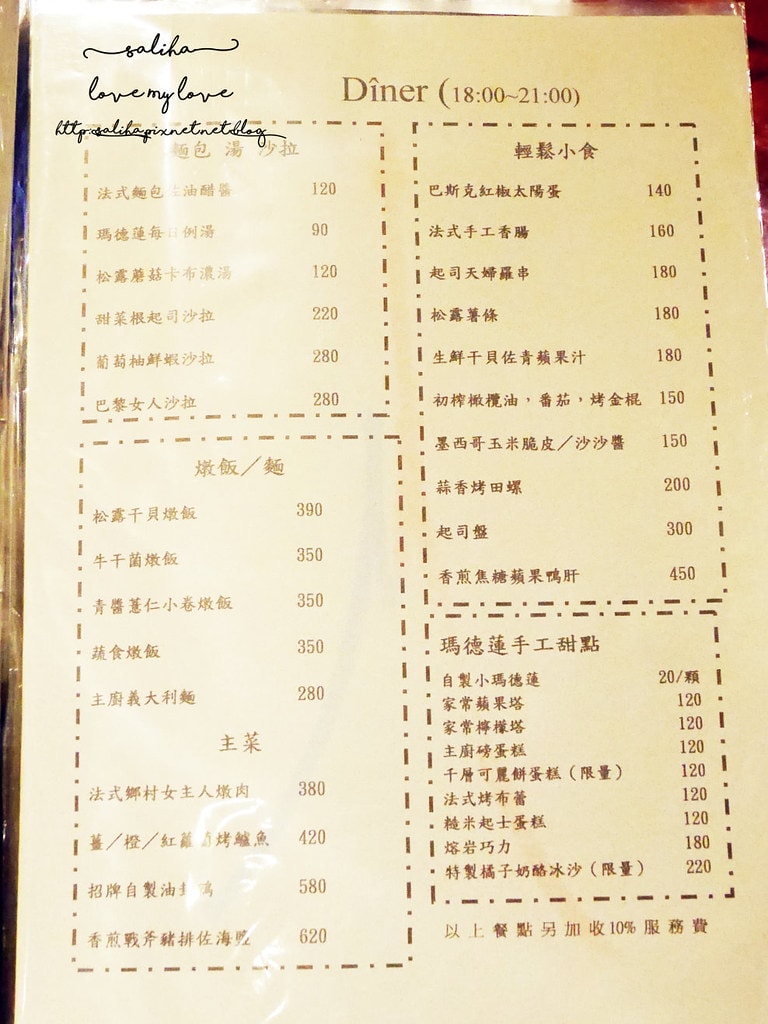 saliha
love my love
http:salihapixnet.net.blog
Dîner (18:00~21:00)
麵包 湯 沙拉
法式麵包 油醋醬 120
瑪德蓮每日例湯 90
松露蘑菇卡布濃湯 120
甜菜根起司沙拉 220
葡萄柚鮮蝦沙拉 280
巴黎女人沙拉 280
燉飯／麵
松露干貝燉飯 390
牛干菌燉飯 350
青醬薏仁小卷燉飯 350
蔬食燉飯 350
主廚義大利麵 280
主菜
法式鄉村女主人燉肉 380
薑／橙／紅蘿蔔烤鱸魚 420
招牌自製油封 580
香煎戰斧豬排佐海鹽 620
輕鬆小食
巴斯克紅椒太陽蛋 140
法式手工香腸 160
起司天婦羅串 180
松露薯條 180
生鮮干貝佐青蘋果汁 180
初榨橄欖油，番茄，烤金棍 150
墨西哥玉米脆皮／沙沙醬 150
蒜香烤田螺 200
起司盤 300
香煎焦糖蘋果鴨肝 450
瑪德蓮手工甜點
自製小瑪德蓮 20/顆
家常蘋果塔 120
家常檸檬塔 120
主廚磅蛋糕 120
千層可麗餅蛋糕（限量） 120
法式烤布蕾 120
糙米起士蛋糕 120
熔岩巧力 180
特製橘子奶酪冰沙（限量） 220
以上餐點另加收10%服務費